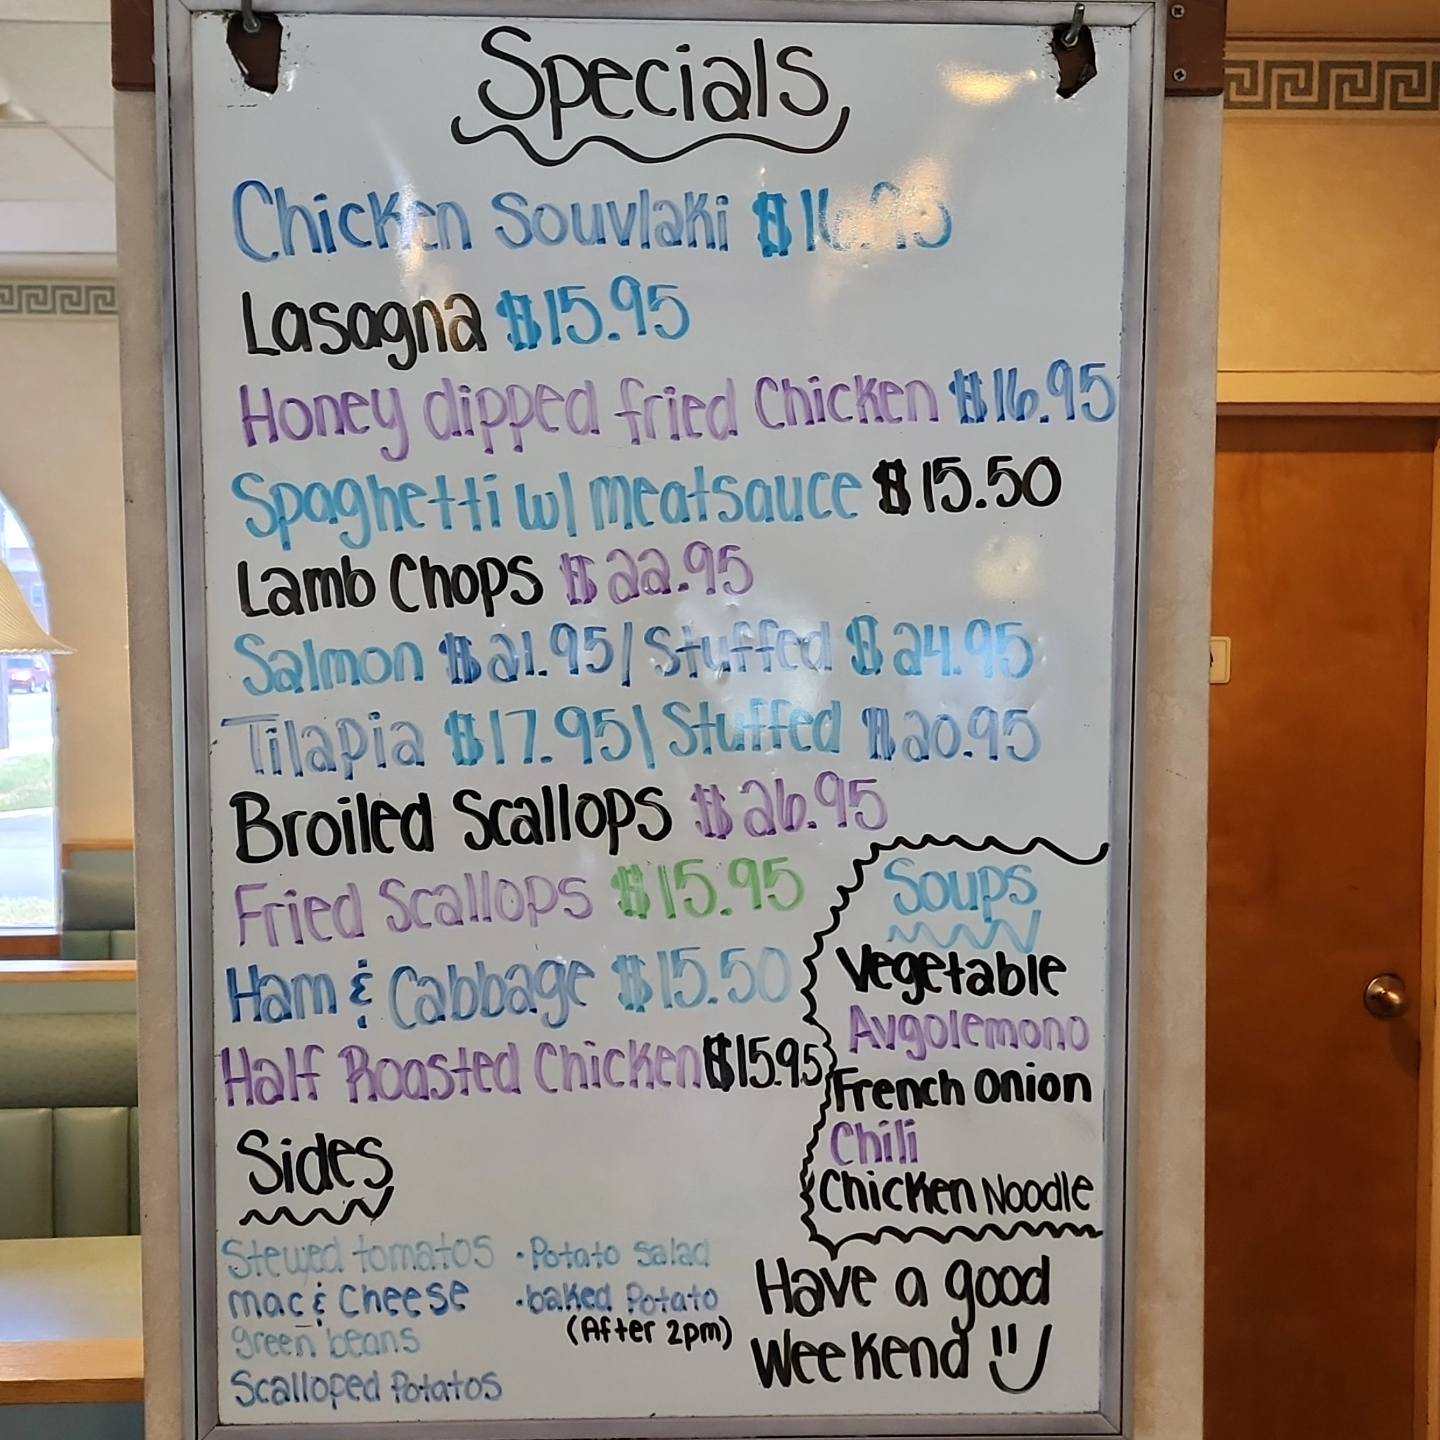 Specials
Chicken Souvlaki $16.95
Lasagna $15.95
Honey dipped fried Chicken $16.95
Spaghetti w/ meatsauce $15.50
Lamb Chops $22.95
Salmon $21.95/ Stuffed $24.95
Tilapia $17.95/ Stuffed $20.95
Broiled Scallops $26.95
Fried Scallops $15.95
Ham & Cabbage $15.50
Half Roasted Chicken $15.95
Soups
Vegetable
Avgolemono
French Onion
Chili
Chicken Noodle
Sides
Stewed tomatos
mac & Cheese
green beans
Scalloped Potatos
·Potato Salad
·baked Potato
(After 2pm)
Have a good
Weekend